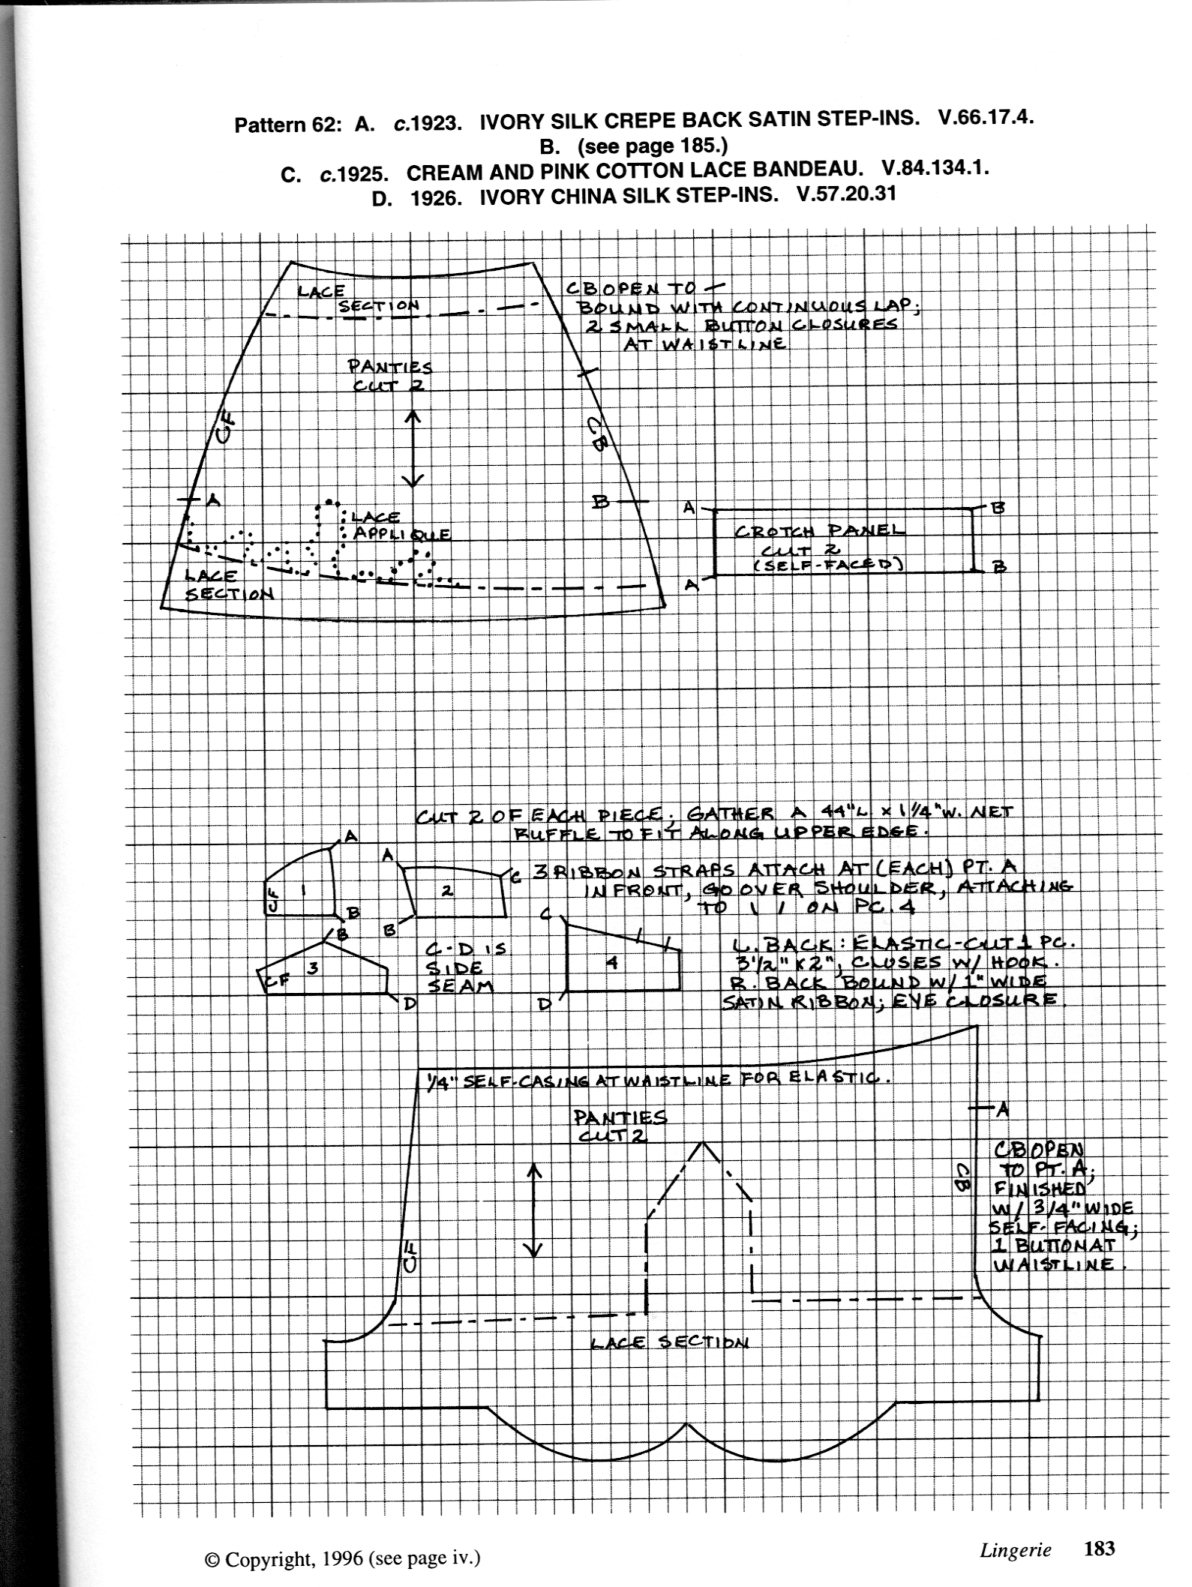 Pattern 62: A. c.1923. IVORY SILK CREPE BACK SATIN STEP-INS. V.66.17.4.
B. (see page 185.)
C. c.1925. CREAM AND PINK COTTON LACE BANDEAU. V.84.134.1.
D. 1926. IVORY CHINA SILK STEP-INS. V.57.20.31
LACE
SECTION
CB OPEN TO —
BOUND WITH CONTINUOUS LAP;
2 SMALL BUTTON CLOSURES
AT WAISTLINE
PANTIES
CUT 2
CF
CB
A
B
LACE
APPLIQUE
LACE
SECTION
A
B
CROTCH PANEL
CUT 2
(SELF-FACED)
A
B
CUT 2 OF EACH PIECE; GATHER A 44"L x 1 1/4"W. NET
RUFFLE TO FIT ALONG UPPER EDGE.
A
CF
1
B
A
2
C
B
3 RIBBON STRAPS ATTACH AT (EACH) PT. A
IN FRONT, GO OVER SHOULDER, ATTACHING
TO \ / ON PC. 4
B
CF
3
D
C-D IS
SIDE
SEAM
C
4
D
L. BACK: ELASTIC-CUT 1 PC.
3 1/2" x 2", CLOSES W/ HOOK.
R. BACK BOUND W/ 1" WIDE
SATIN RIBBON; EYE CLOSURE.
1/4" SELF-CASING AT WAISTLINE FOR ELASTIC.
PANTIES
CUT 2
A
CF
CB
CB OPEN
TO PT. A;
FINISHED
W/ 3/4" WIDE
SELF-FACING;
1 BUTTON AT
WAISTLINE.
LACE SECTION
© Copyright, 1996 (see page iv.)
Lingerie 183